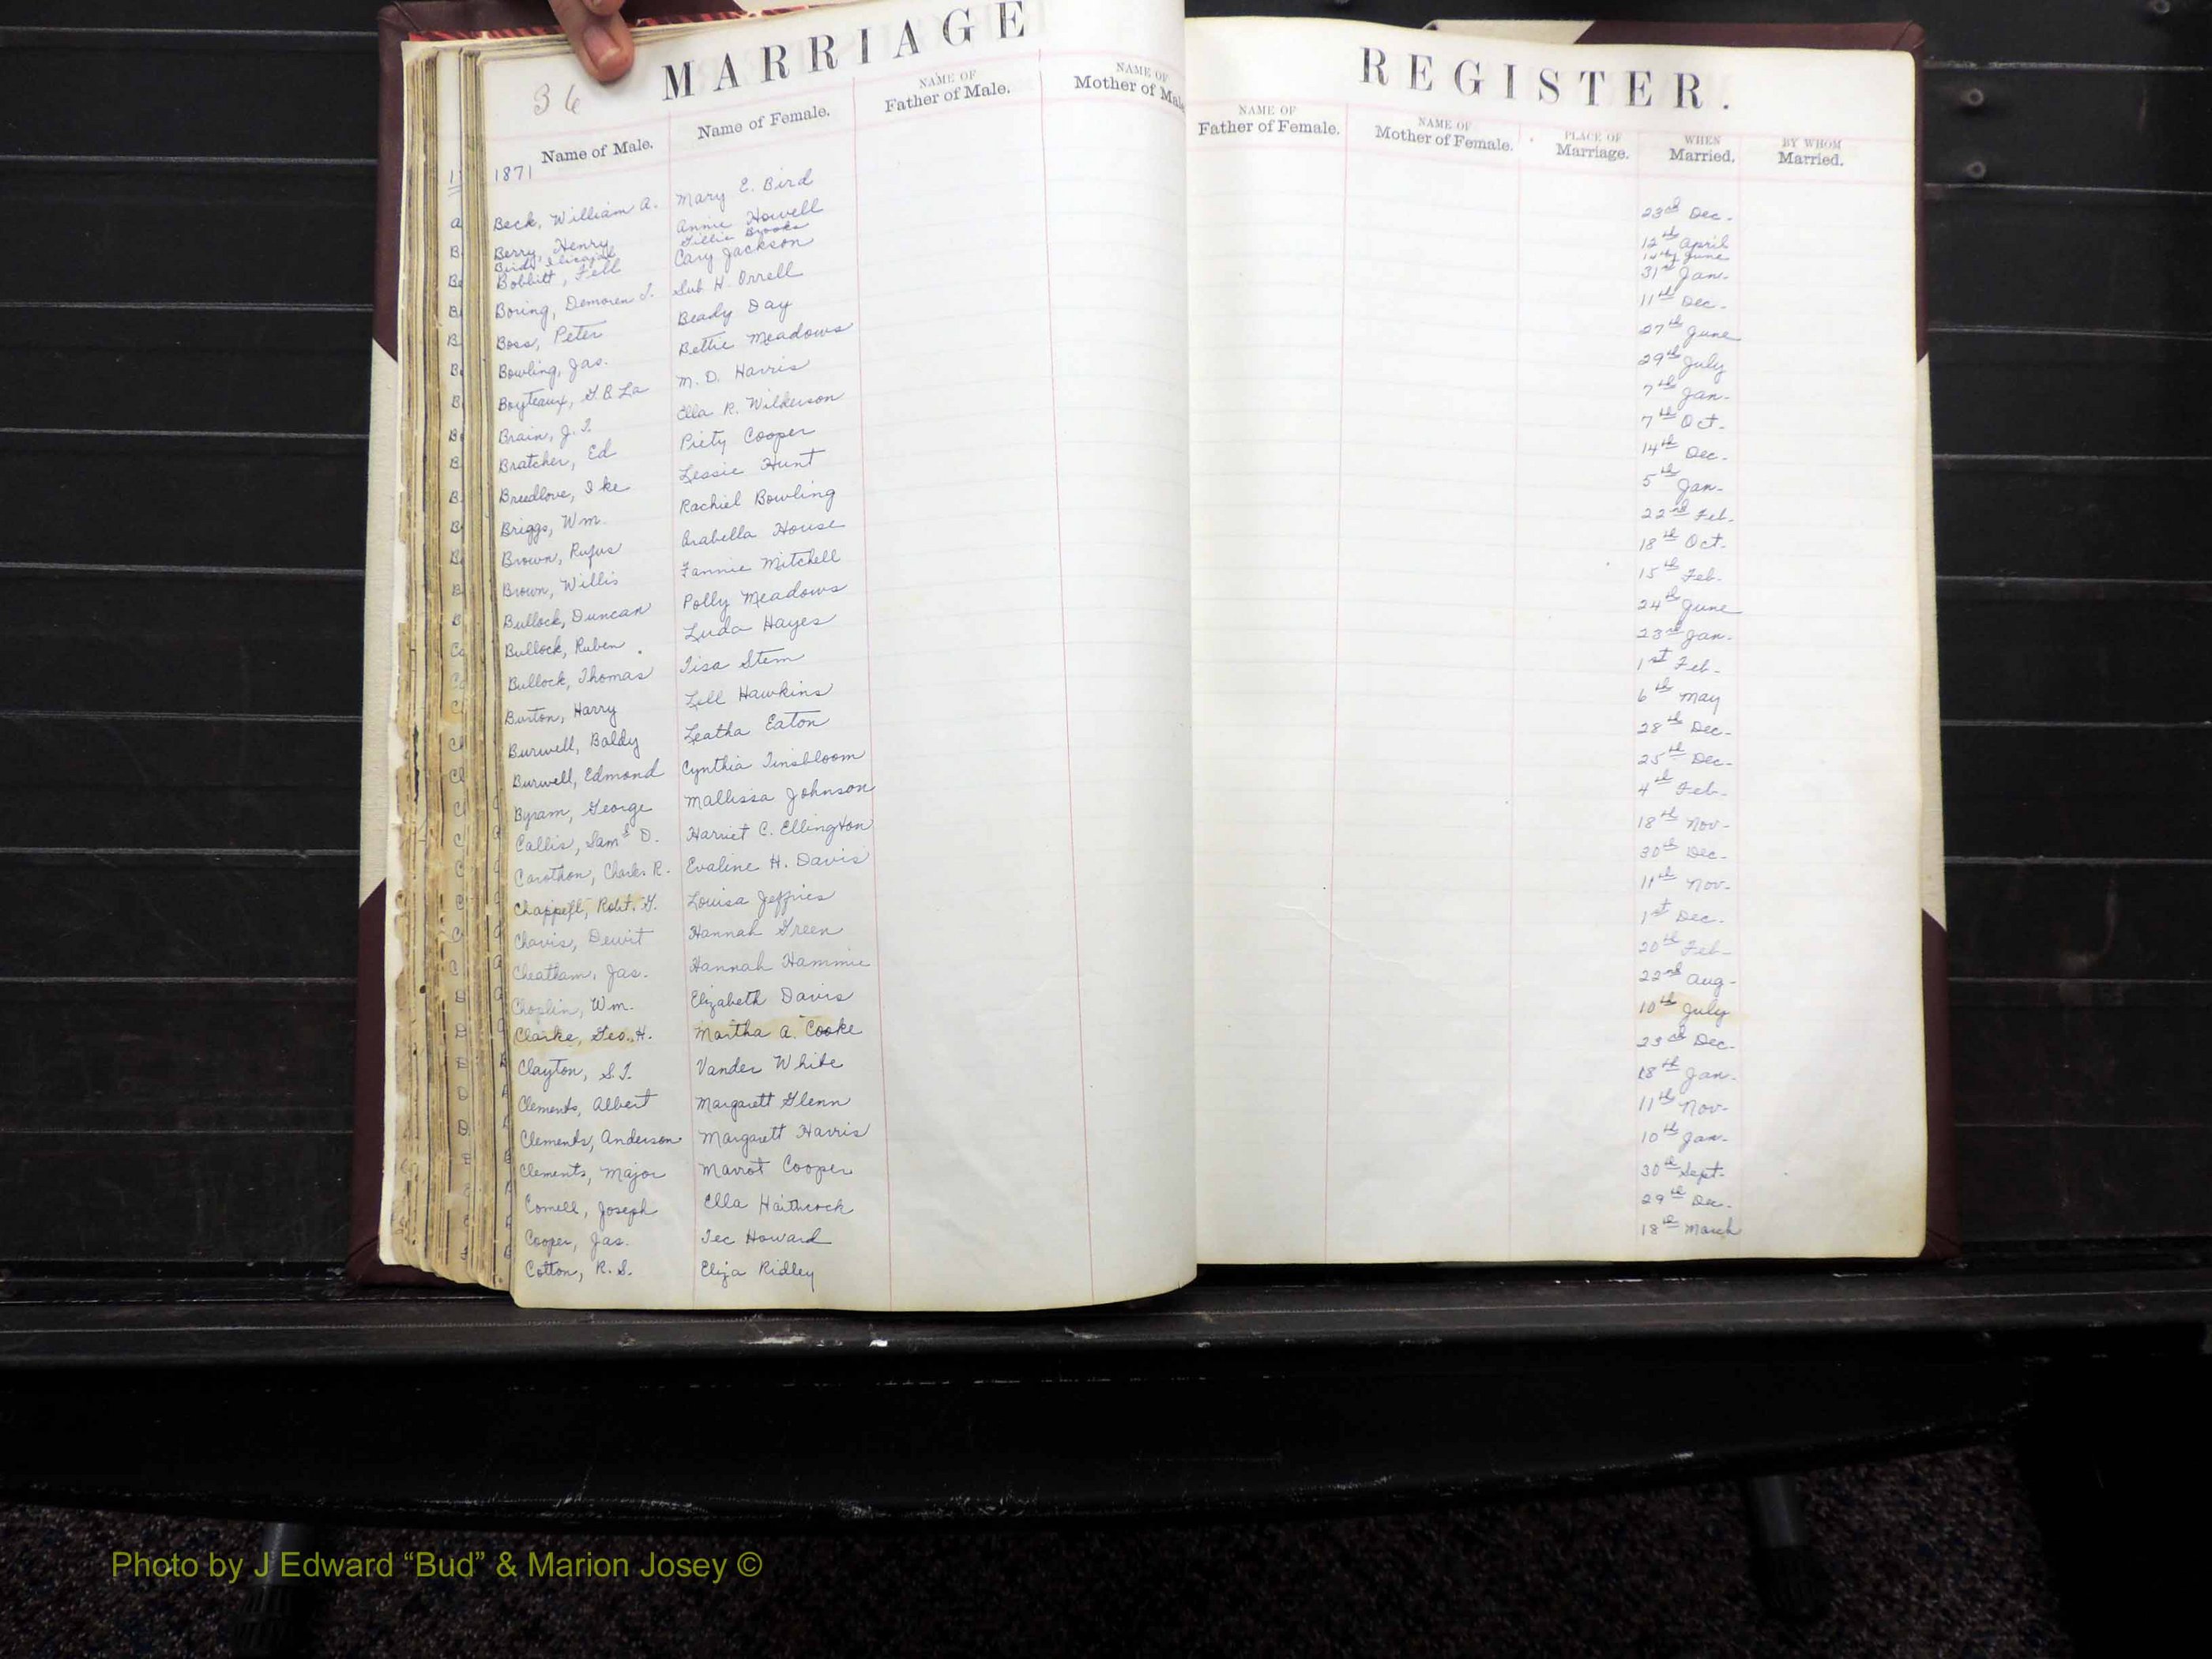 MARRIAGE REGISTER.
36
Name of Male. Name of Female. NAME OF Father of Male. NAME OF Mother of Male NAME OF Father of Female. NAME OF Mother of Female. PLACE OF Marriage. WHEN Married. BY WHOM Married.
1871
Beck, William A. Mary E. Bird 23rd Dec.
Berry, Henry Annie Howell 12th April
Bird, Brooks June
Bobbitt, Fell Cary Jackson 31st Jan.
Boring, Demoren J. Sub H. Orrell 11th Dec.
Boss, Peter Beady Day 27th June
Bowling, Jas. Bettie Meadows 29th July
Boyteaux, G.B. La M. D. Harris 7th Jan.
Brain, J. T. Ella R. Wilderson 7th Oct.
Bratcher, Ed Piety Cooper 14th Dec.
Breedlove, Ike Lessie Hunt 5th Jan.
Briggs, Wm. Rachiel Bowling 22nd Feb.
Brown, Rufus Arabella House 18th Oct.
Brown, Willis Fannie Mitchell 15th Feb.
Bullock, Duncan Polly Meadows 24th June
Bullock, Ruben Luda Hayes 23rd Jan.
Bullock, Thomas Tisa Stem 1st Feb.
Burton, Harry Lell Hawkins 6th May
Burwell, Baldy Leatha Eaton 28th Dec.
Burwell, Edmond Cynthia Tinsbloom 25th Dec.
Byram, George Mallissa Johnson 4th Feb.
Callis, Saml D. Harriet C. Ellington 18th Nov.
Carothon, Charles R. Evaline H. Davis 30th Dec.
Chappell, Robt. G. Louisa Jeffries 11th Nov.
Chavis, Dewit Hannah Green 1st Dec.
Cheatham, Jas. Hannah Hammie 20th Feb.
Choplin, Wm. Elizabeth Davis 22nd Aug.
Clarke, Geo. H. Martha A. Cooke 10th July
Clayton, S.T. Vander White 23rd Dec.
Clements, Albert Margarett Glenn 18th Jan.
Clements, Anderson Margarett Harris 11th Nov.
Clements, Major Marrot Cooper 10th Jan.
Cornell, Joseph Ella Haithcock 30th Sept.
Cooper, Jas. Tec Howard 29th Dec.
Cotton, R. S. Eliza Ridley 18th March
Photo by J Edward “Bud” & Marion Josey ©